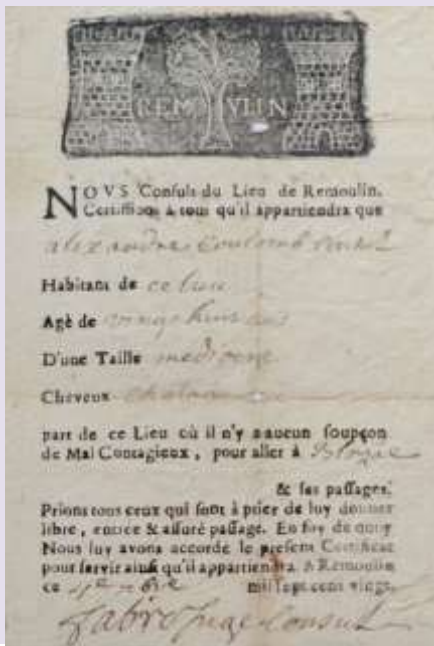 REM VLIN
NOVS Consuls du Lieu de Remoulin,
Certiffions à tous qu'il appartiendra que
alexandre coulomb
Habitant de ce lieu
Agè de vingt huit ans
D'une Taille mediocre
Cheveux chatain
part de ce Lieu où il n'y a aucun soupçon
de Mal Contagieux, pour aller à
& ses passages.
Prions tous ceux qui sont à prier de luy donner
libre, entrée & assuré passage. En foy de quoy
Nous luy avons accordé le present Certificat
pour servir ainsi qu'il appartiendra. A Remoulin
ce mil sept cent vingt.
Fabre Juge Consul